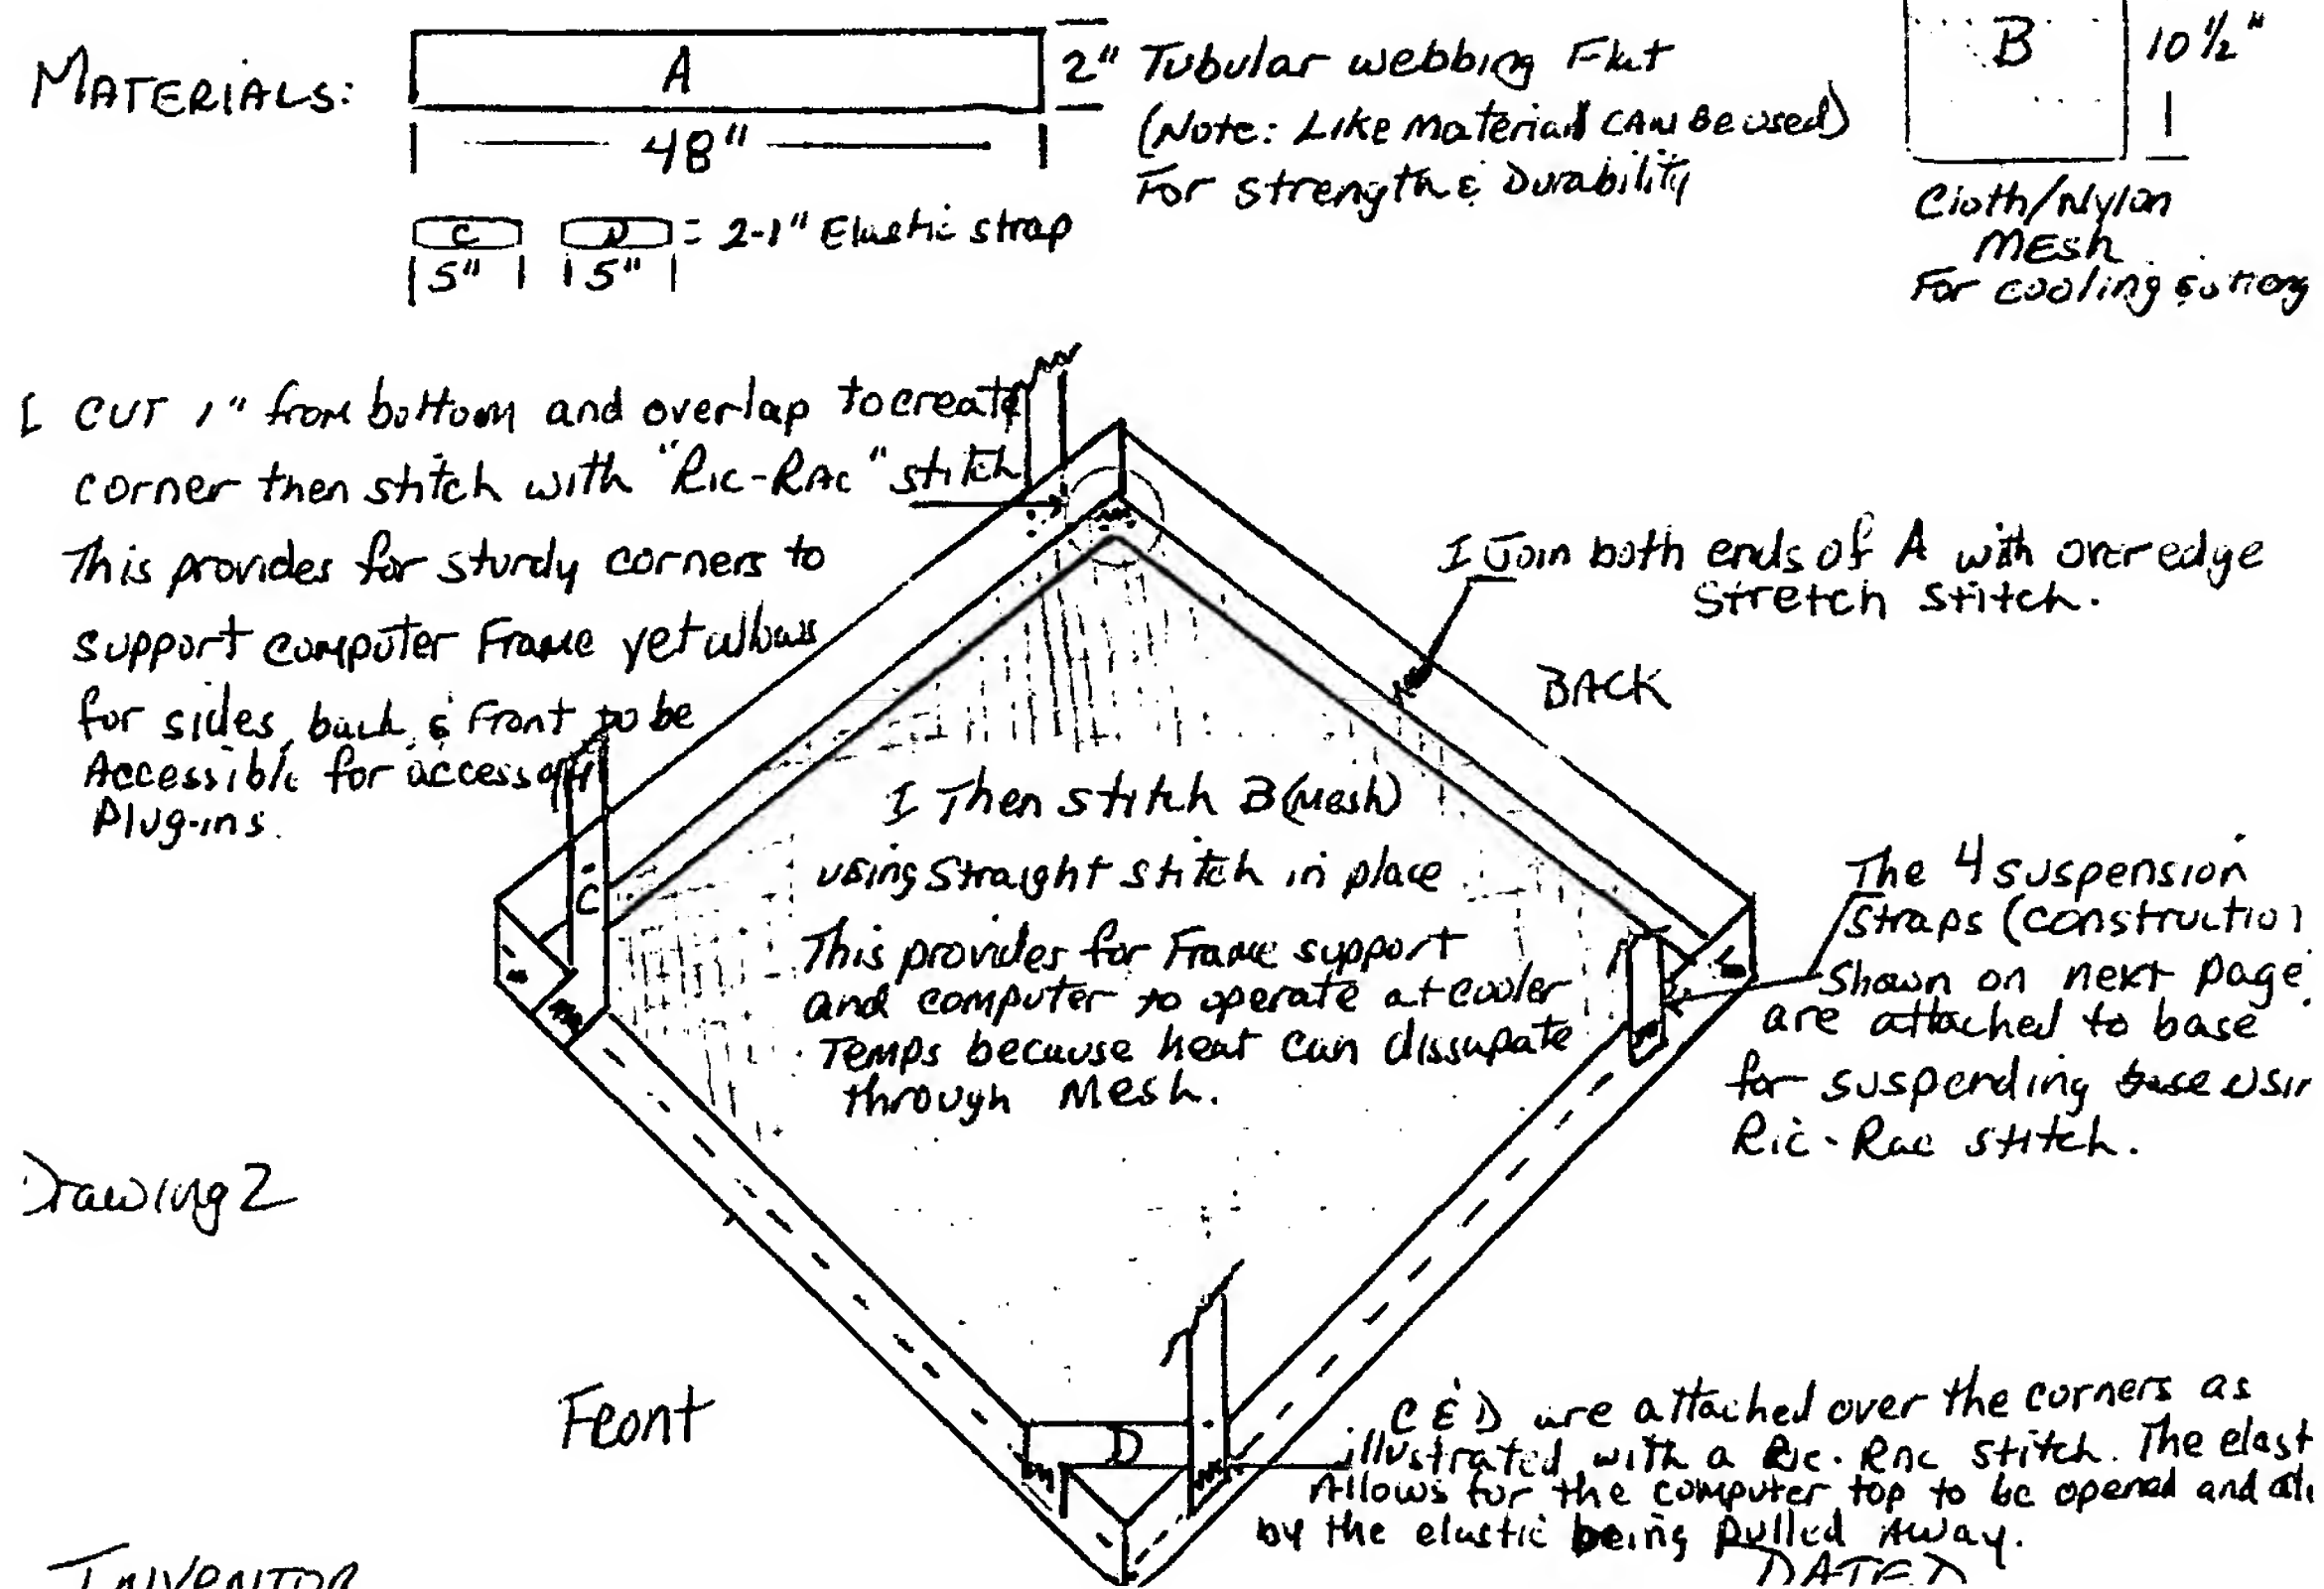 MATERIALS:
A
2" Tubular webbing Flat
(Note: Like Material CAN Be used)
For strength & Durability
48"
C D = 2-1" Elastic strap
5" 5"
B
10 1/2"
Cloth/Nylon
MEsh
For cooling
I CUT 1" from bottom and overlap to create
corner then stitch with "Ric-RAc" stitch
This provides for sturdy corners to
support computer Frame yet allows
for sides, back, & Front to be
Accessible for
Plug-ins.
I Join both ends of A with over edge
Stretch stitch.
BACK
I Then stitch B (Mesh)
using Straight stitch in place
This provides for Frame support
and computer to operate at cooler
Temps because heat can dissupate
through Mesh.
C
The 4 suspension
straps (constructio
Shown on next page
are attached to base
for suspending base usin
Ric-Rac stitch.
Drawing 2
Front
D
C & D are attached over the corners as
illustrated with a Ric-Rac stitch. The elast
Allows for the computer top to be opened and
by the elastic being pulled AWay.
INVENTOR
DATED